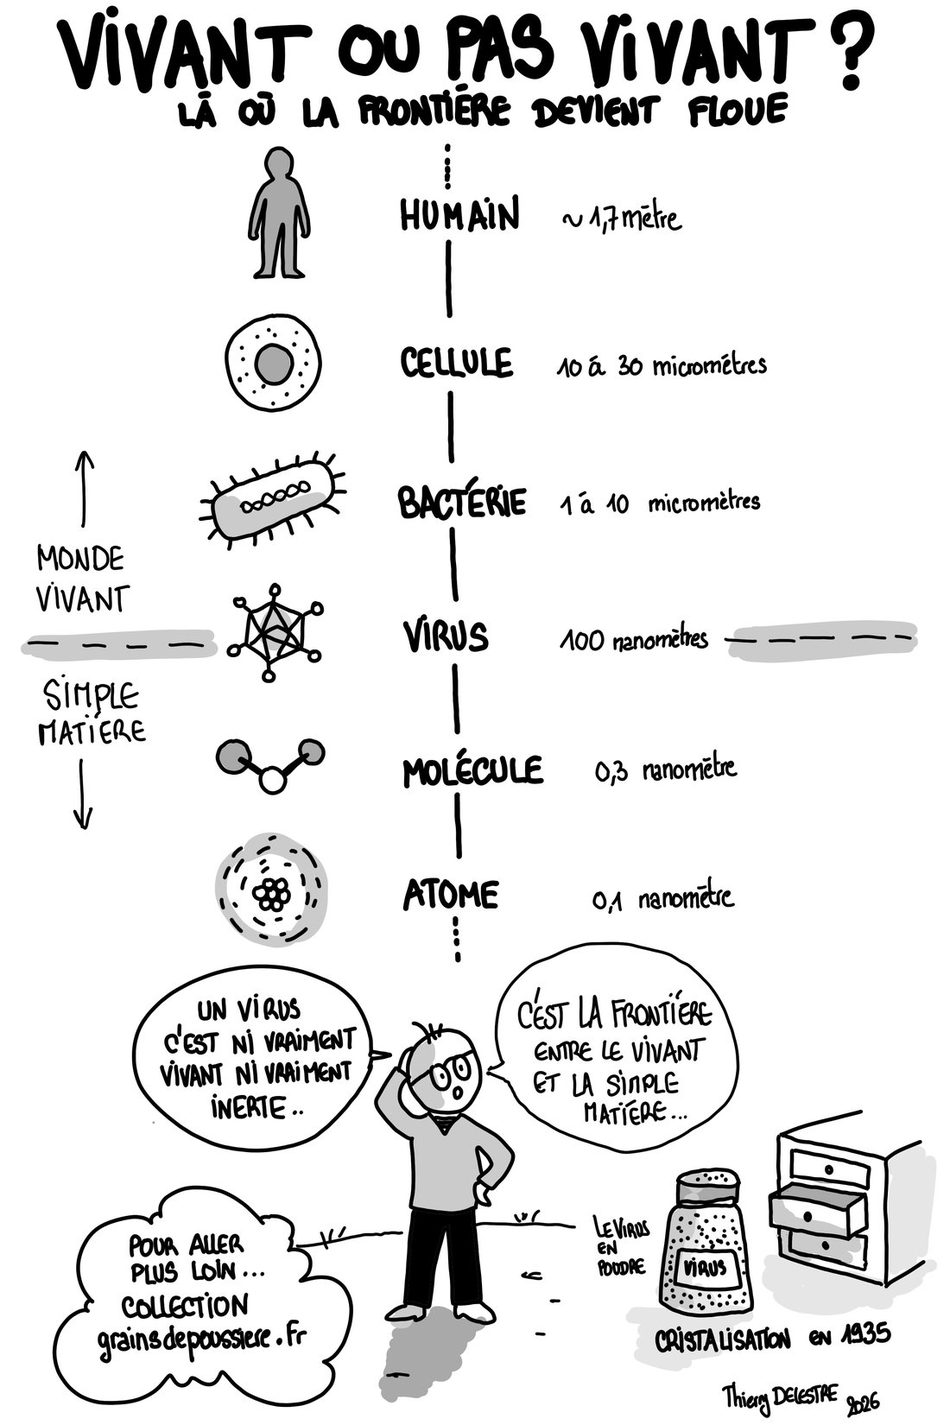 VIVANT OU PAS VIVANT ?
LĀ OŪ LA FRONTIÉRE DEVIENT FLOUE
HUMAIN ~ 1,7 mētre
CELLULE 10 á 30 micrométres
BACTÉRIE 1 á 10 micromètres
MONDE
VIVANT
VIRUS 100 nanomètres
SIMPLE
MATIÉRE
MOLÉCULE 0,3 nanomētre
ATOME 0,1 nanomētre
UN VIRUS
C'EST NI VRAIMENT
VIVANT NI VRAIMENT
INERTE..
C'EST LA FRONTIÉRE
ENTRE LE VIVANT
ET LA SIMPLE
MATIÉRE...
POUR ALLER
PLUS LOIN...
COLLECTION
grainsdepoussiere.fr
LE VIRUS
EN
POUDRE
VIRUS
CRISTALISATION EN 1935
Thierry DELESTRE 2026